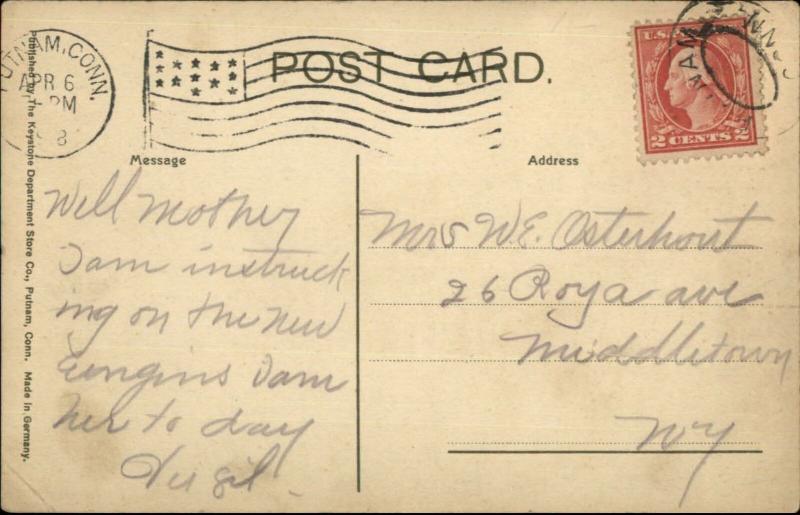 PUTNAM, CONN.
APR 6
PM
8
POST CARD.
U.S.
2 CENTS 2
AM
CONN.
Published by The Keystone Department Store Co., Putnam, Conn. Made in Germany.
Message
Address
Well Mother
I am instruck
ing on the new
Eungins I am
her to day
Virgil.
Mrs W.E. Osterhout
26 Roya ave
Middletown
NY